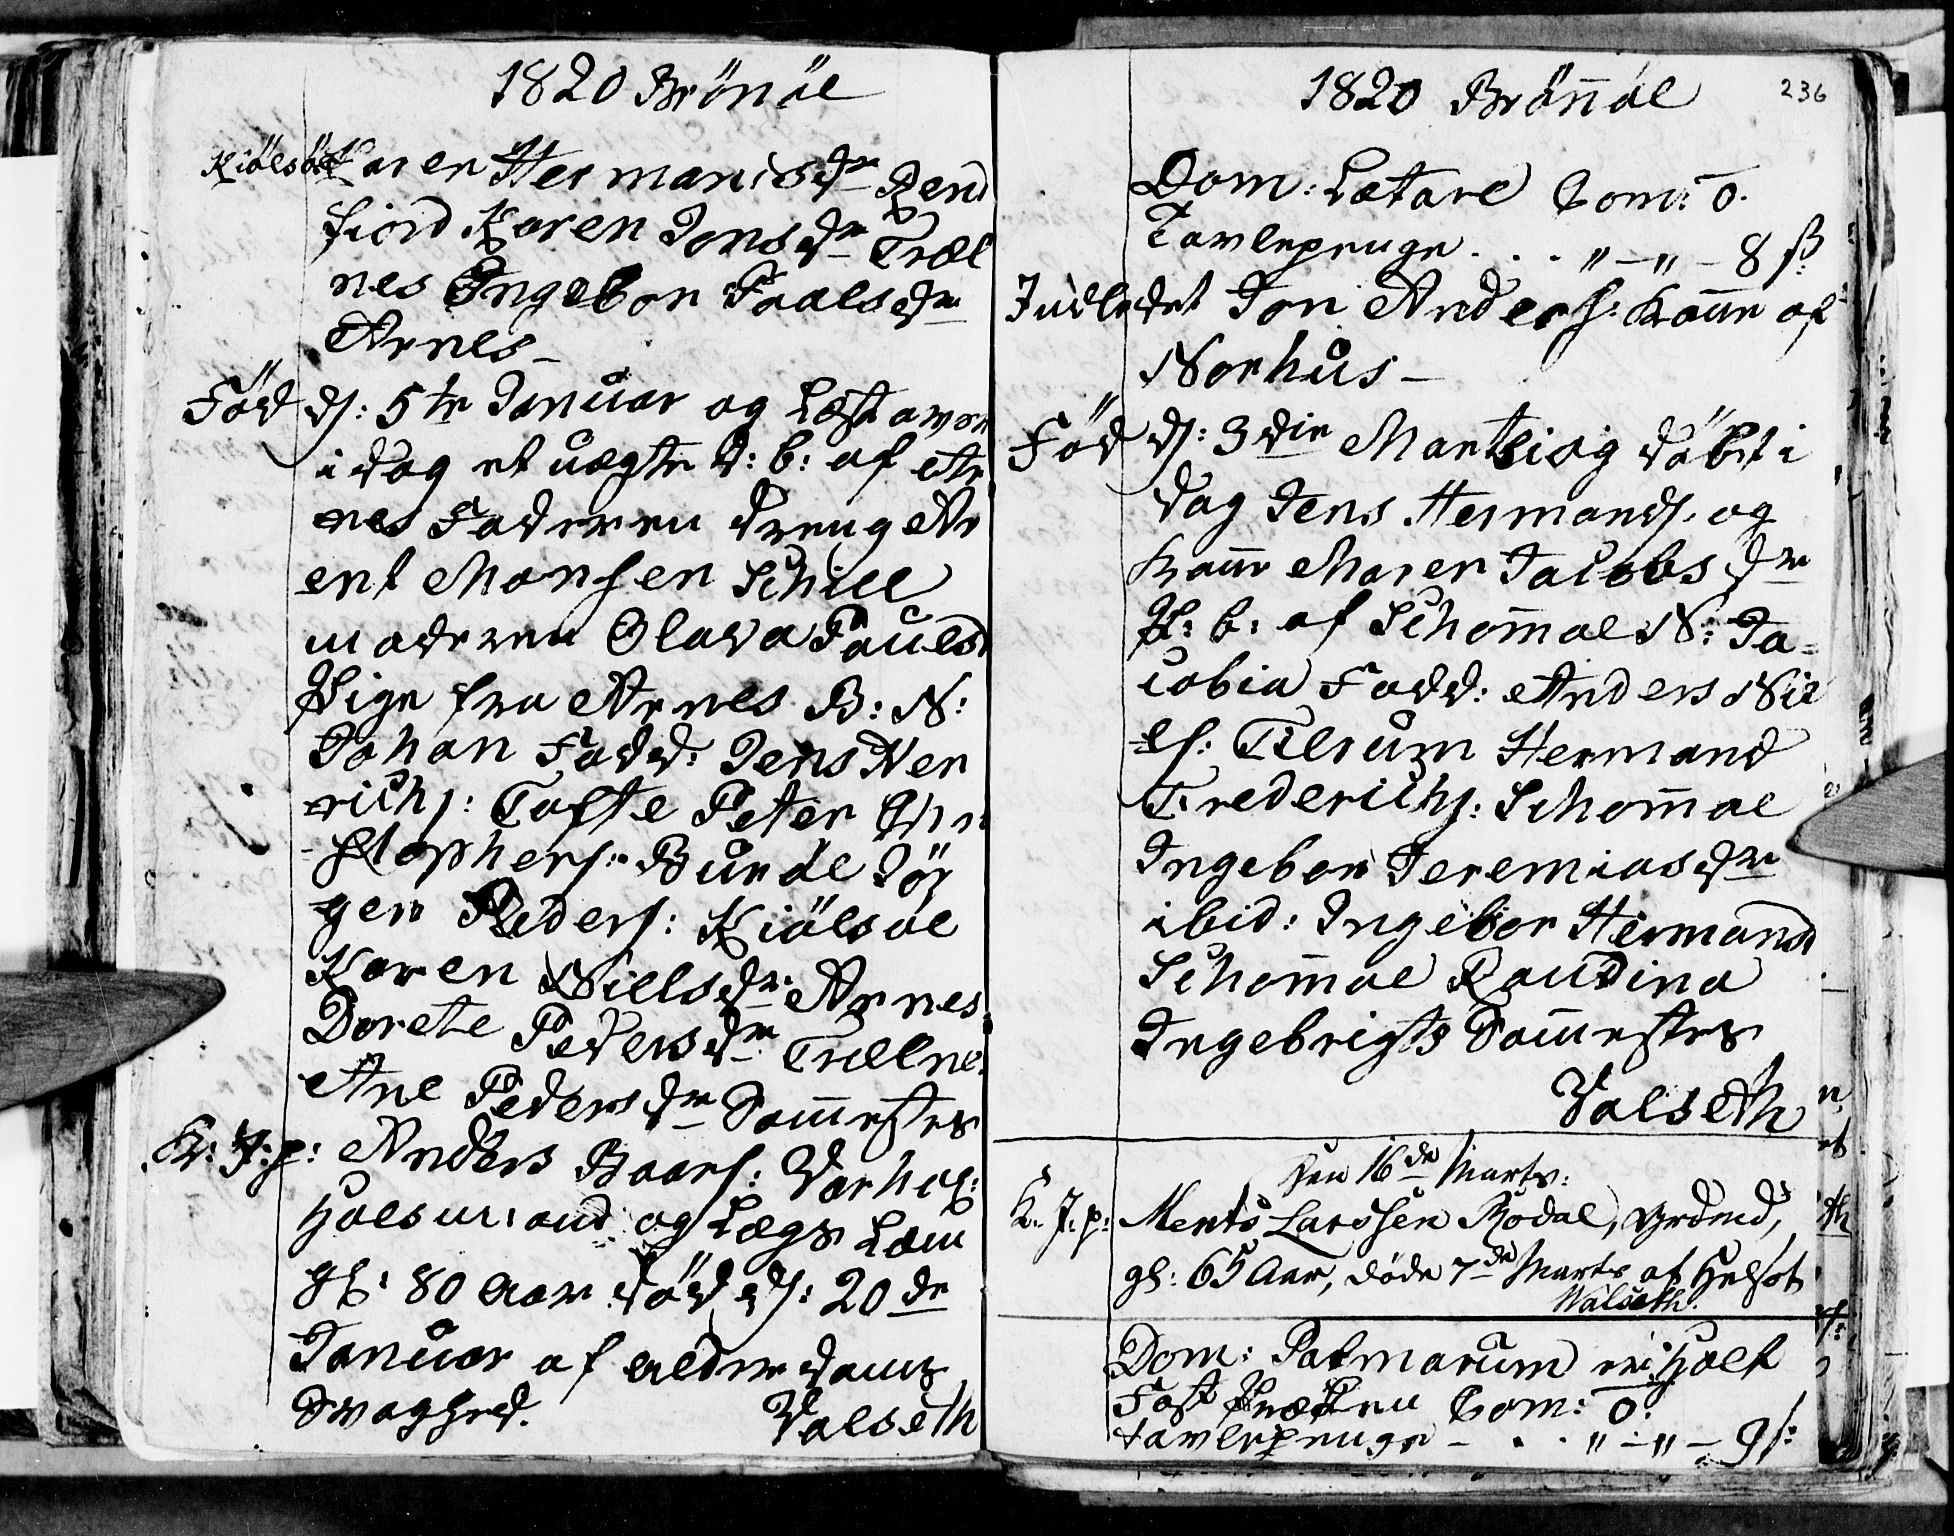 1820 Brönöe
Kiölsöe Karen Hermansdr Rend
fiord Karen Jonsdr Træl
nes Ingebor Paalsdr
Arnes
Föd d: 5te Januar og
i dag et uægte d: b: af Ar
nes Faderen dreng Ar
ent Monsen Schill
moderen Olava Paulsd
Pige fra Arnes B: N:
Johan Fadd: Jens Hen
richs: Tofte Peter Chri
stophers: Burøe Jör
gen Peders: Kiölsöe
Karen Nielsdr Arnes
Dorete Pedersdr Trælne
Ane Pedersdr Sømnestes
K: J: p: Anders Baars:
og Lægs Lem
gl: 80 Aar död d: 20de
Januar af alderdoms
Svaghed. Valseth
1820 Brönöe 236
Dom: Lætare Com: 0.
Tavlepenge . . . " - " - 8 ß
Indledet Jon Anders: Kone af
Norhus
Föd d: 3die Marts og döbt i
dag Jens Hermands: og
Kone Maren Jacobsdr
P: b: af Schomoe N: Ja-
cobia Fadd: Anders Nie
ls: Tilrum Hermand
Frederichs: Schomoe
Ingebor Jeremiasdr
ibid: Ingebor Hermand
Schomoe Paulina
Ingebrigts Sømnestes
Valseth
Den 16de Marts:
K: J: p: Ments Larssen Rodal, Grdmd,
gl: 65 Aar, døde 7de Marts af
Walseth.
Dom: Palmarum
Fast Com: 0.
tavlepenge - . . " - " - 9 ß: